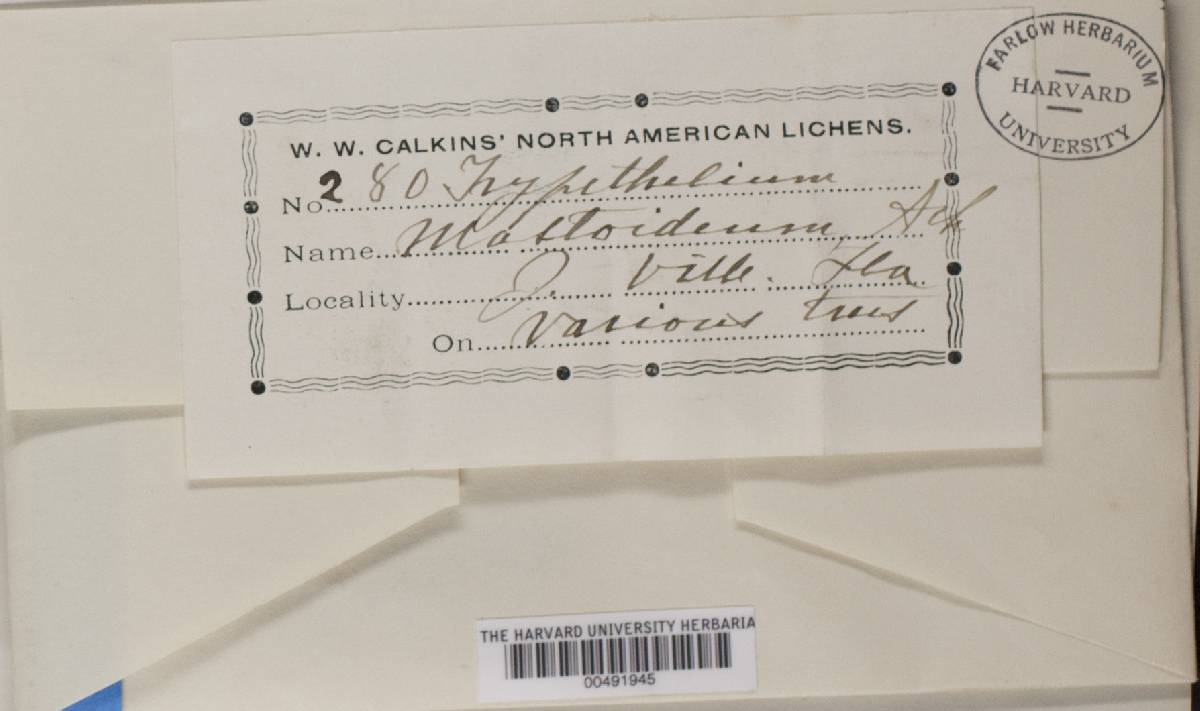 FARLOW HERBARIUM
HARVARD
UNIVERSITY
W. W. CALKINS' NORTH AMERICAN LICHENS.
No. 280 Trypethelium
Name Mastoideum Ach
Locality J. Ville. Fla
On Various trees
THE HARVARD UNIVERSITY HERBARIA
00491945